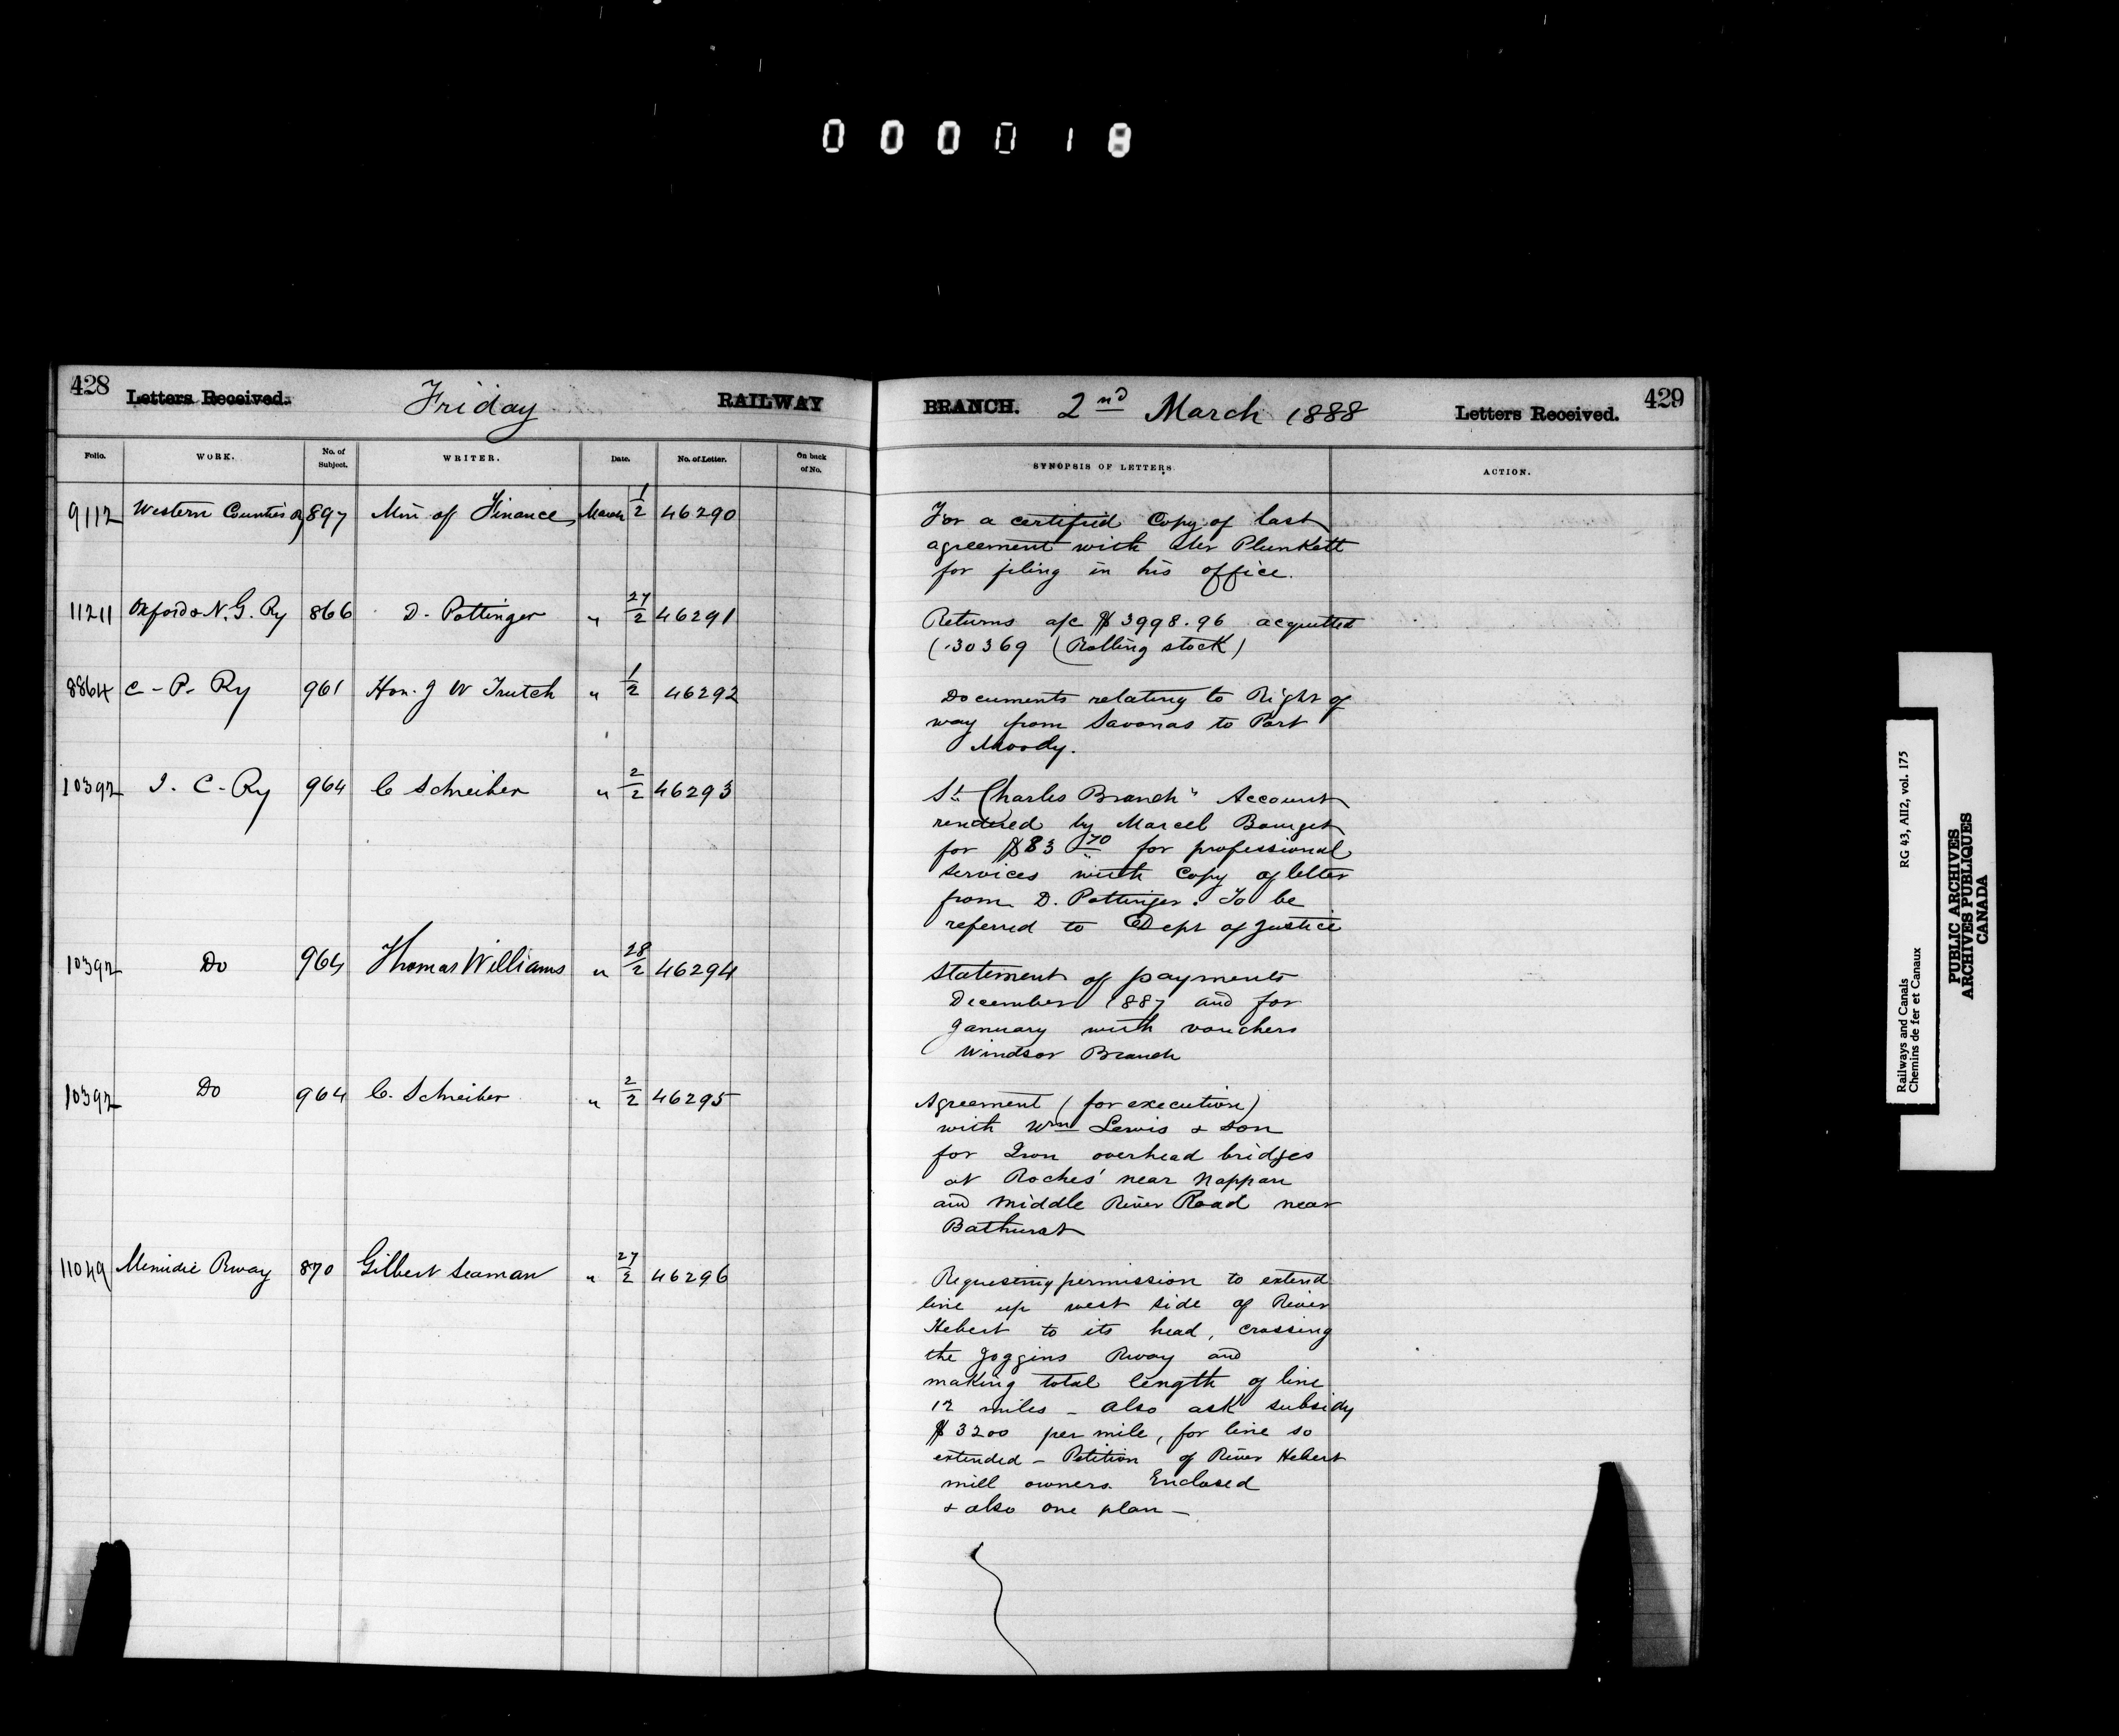 000018
428 Letters Received. Friday RAILWAY
BRANCH. 2nd March 1888 Letters Received. 429
Folio. WORK. No. of Subject. WRITER. Date. No. of Letter. On back of No.
SYNOPSIS OF LETTERS. ACTION.
9112 Western Counties Ry 897 Min of Finance March 1/2 46290
For a certified Copy of last
agreement with Mr Plunkett
for filing in his office.
11211 Oxford & N. G. Ry 866 D. Pottinger " 27/2 46291
Returns a/c $3998.96 acquitted
(30369 (Rolling stock)
8864 C-P-Ry 961 Hon. J W Trutch " 1/2 46292
Documents relating to Right of
way from Savonas to Port
Moody.
10392 I. C-Ry 964 C Schreiber " 2/2 46293
St Charles Branch" Account
rendered by Marcel Bourget
for $83 70 for professional
services with Copy of letter
from D. Pottinger. To be
referred to Dept of Justice
10392 Do 964 Thomas Williams " 28/2 46294
Statement of payments
December 1887 and for
January with vouchers
Windsor Branch
10392 Do 964 C. Schreiber " 2/2 46295
Agreement (for execution)
with Wm Lewis & Son
for Iron overhead bridges
at Roches' near Nappan
and Middle River Road near
Bathurst
11049 Minudie Rway 870 Gilbert Seaman " 27/2 46296
Requesting permission to extend
line up west side of River
Hebert to its head, crossing
the Joggins Rway and
making total length of line
12 miles - also ask subsidy
$3200 per mile, for line so
extended - Petition of River Hebert
mill owners. Enclosed
& also one plan -
Railways and Canals RG 43, AII2, vol. 175
Chemins de fer et Canaux
PUBLIC ARCHIVES
ARCHIVES PUBLIQUES
CANADA